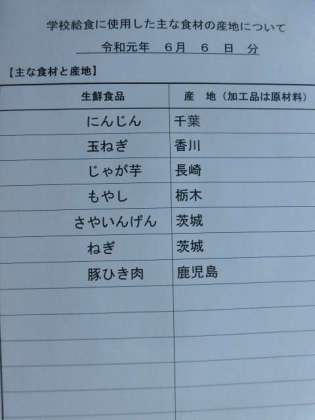 学校給食に使用した主な食材の産地について
令和元年 6月 6 日 分
【主な食材と産地】
生鮮食品 産 地（加工品は原材料）
にんじん 千葉
玉ねぎ 香川
じゃが芋 長崎
もやし 栃木
さやいんげん 茨城
ねぎ 茨城
豚ひき肉 鹿児島